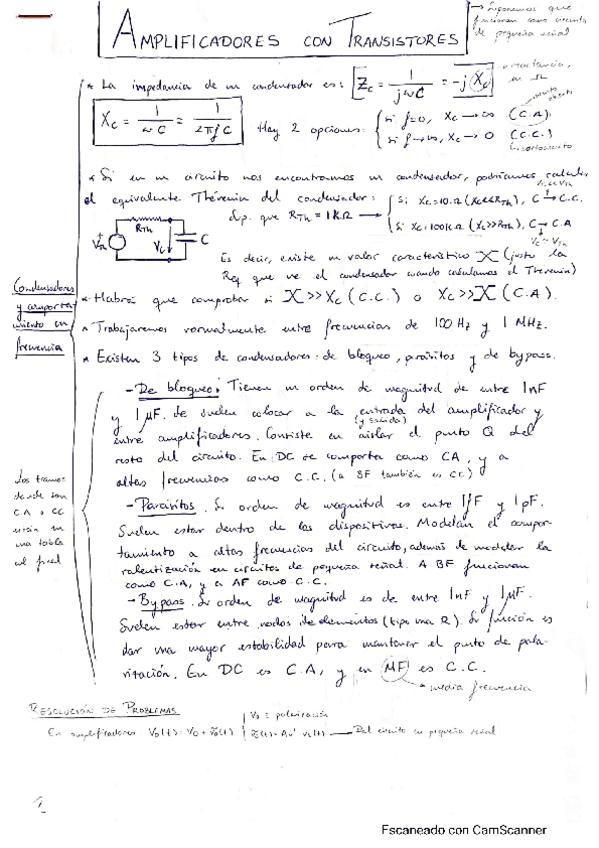 AMPLIFICADORES CON TRANSISTORES
→ Suponemos que
funcionan como circuito
de pequeña señal
* La impedancia de un condensador es: Zc = 1/jωC = -j Xc
reactancia,
en Ω
Xc = 1/ωC = 1/2πfC
Hay 2 opciones: si f=0, Xc → ∞ (C.A.)
circuito abierto
si f→∞, Xc → 0 (C.C.)
Cortocircuito
* Si en un circuito nos encontramos un condensador, podríamos calcular
el equivalente Thévenin del condensador:
Sup. que RTh = 1kΩ →
Si Xc=10Ω (Xc<<RTh), C → C.C.
Si Xc=100kΩ (Xc>>RTh), C → C.A
Vc ≈ VTh
RTh
VTh
Vc
C
Es decir, existe un valor característico X (justo la
Req que ve el condensador cuando calculamos el Thevenin)
Condensadores
y comporta-
miento en
frecuencia
* Habrá que comprobar si X>>Xc (C.C.) o Xc>>X (C.A).
* Trabajaremos normalmente entre frecuencias de 100 Hz y 1 MHz.
* Existen 3 tipos de condensadores: de bloqueo, parásitos y de bypass.
- De bloqueo: Tienen un orden de magnitud de entre 1nF
y 1μF. Se suelen colocar a la entrada del amplificador y
(y salida)
entre amplificadores. Consiste en aislar el punto Q del
resto del circuito. En DC se comporta como CA, y a
altas frecuencias como C.C. (a BF también es CC)
Los tramos
donde son
C.A o CC
están en
una tabla
al final
- Parásitos. Su orden de magnitud es entre 1fF y 1pF.
Suelen estar dentro de los dispositivos. Modelan el compor-
tamiento a altas frecuencias del circuito, además de modelar la
ralentización en circuitos de pequeña señal. A BF funcionan
como C.A, y a AF como C.C.
- Bypass. Su orden de magnitud es de entre 1nF y 1μF.
Suelen estar entre nodos de elementos (tipo una R). Su función es
dar una mayor estabilidad para mantener el punto de pola-
rización. En DC es C.A, y en MF es C.C.
→ media frecuencia
RESOLUCIÓN DE PROBLEMAS
En amplificadores
Vo ≡ polarización
Del circuito en pequeña señal
1
Escaneado con CamScanner